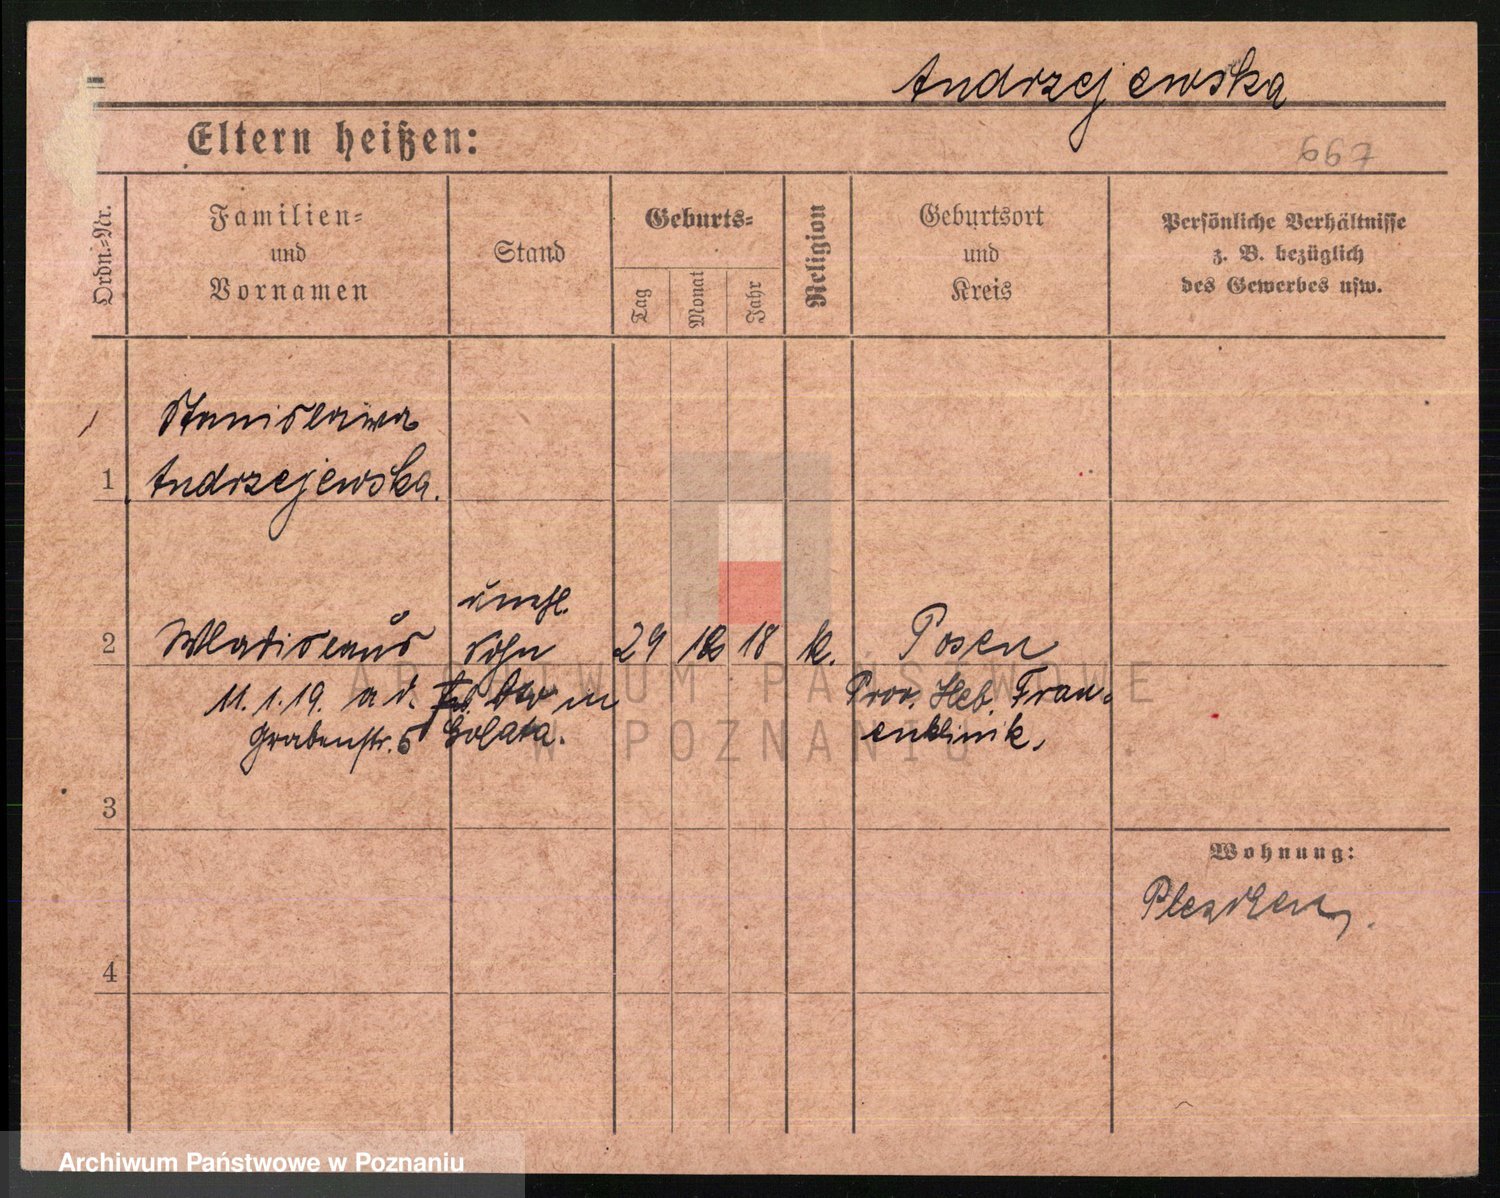 Andrzejewska
Eltern heißen:
667
Ordn.-Nr.
Familien-
und
Vornamen
Stand
Geburts-
Tag
Monat
Jahr
Religion
Geburtsort
und
Kreis
Persönliche Verhältnisse
z. B. bezüglich
des Gewerbes usw.
1
Stanislawa
Andrzejewska.
2
Wladislaus
unehl.
Sohn
29
18
k.
Posen
11.1.19. a.d.
in
Prov. Heb. Frau-
Grabenstr. 5
Golata.
enklinik.
3
Wohnung:
Pleschen
4
ARCHIWUM PAŃSTWOWE
W POZNANIU
Archiwum Państwowe w Poznaniu